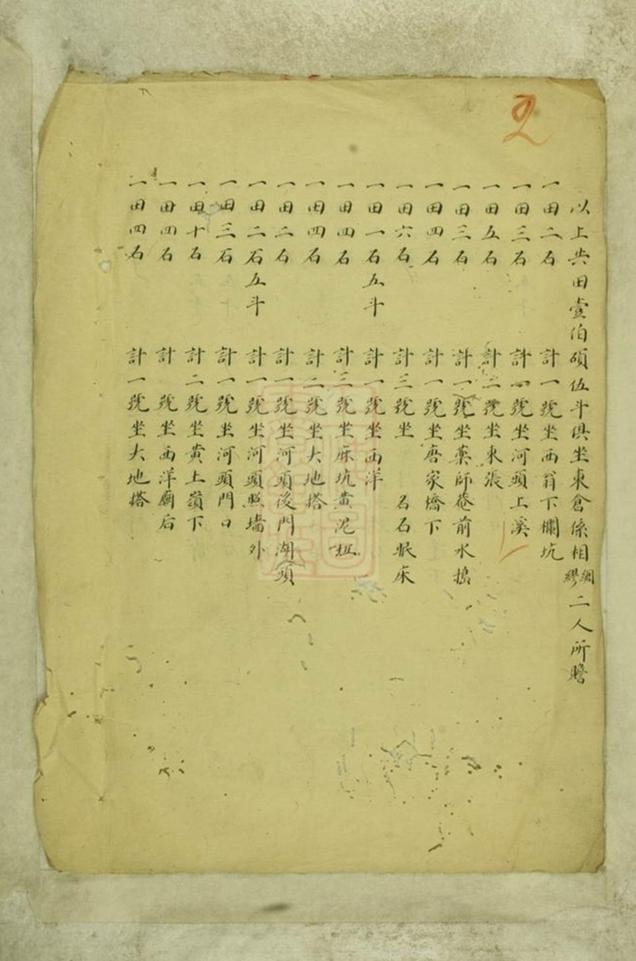 2
以上共田壹伯碩伍斗俱坐東倉係相綢繆二人所贍
一田二石 計一號坐西翁下欄坑
一田三石 計一號坐河頭上溪
一田五石 計二號坐東張
一田三石 計一號坐藥師菴前水搗
一田四石 計一號坐唐家墻下
一田六石 計三號坐 石眠床
一田一石五斗 計一號坐西洋
一田四石 計三號坐麻坑黄泥
一田四石 計二號坐大地塔
一田二石 計一號坐河頭後門湖頭
一田二石五斗 計一號坐河頭照墻外
一田三石 計一號坐河頭門口
一田十石 計二號坐黄土嶺下
一田四石 計 號坐西洋廟后
一田四石 計一號坐大地塔